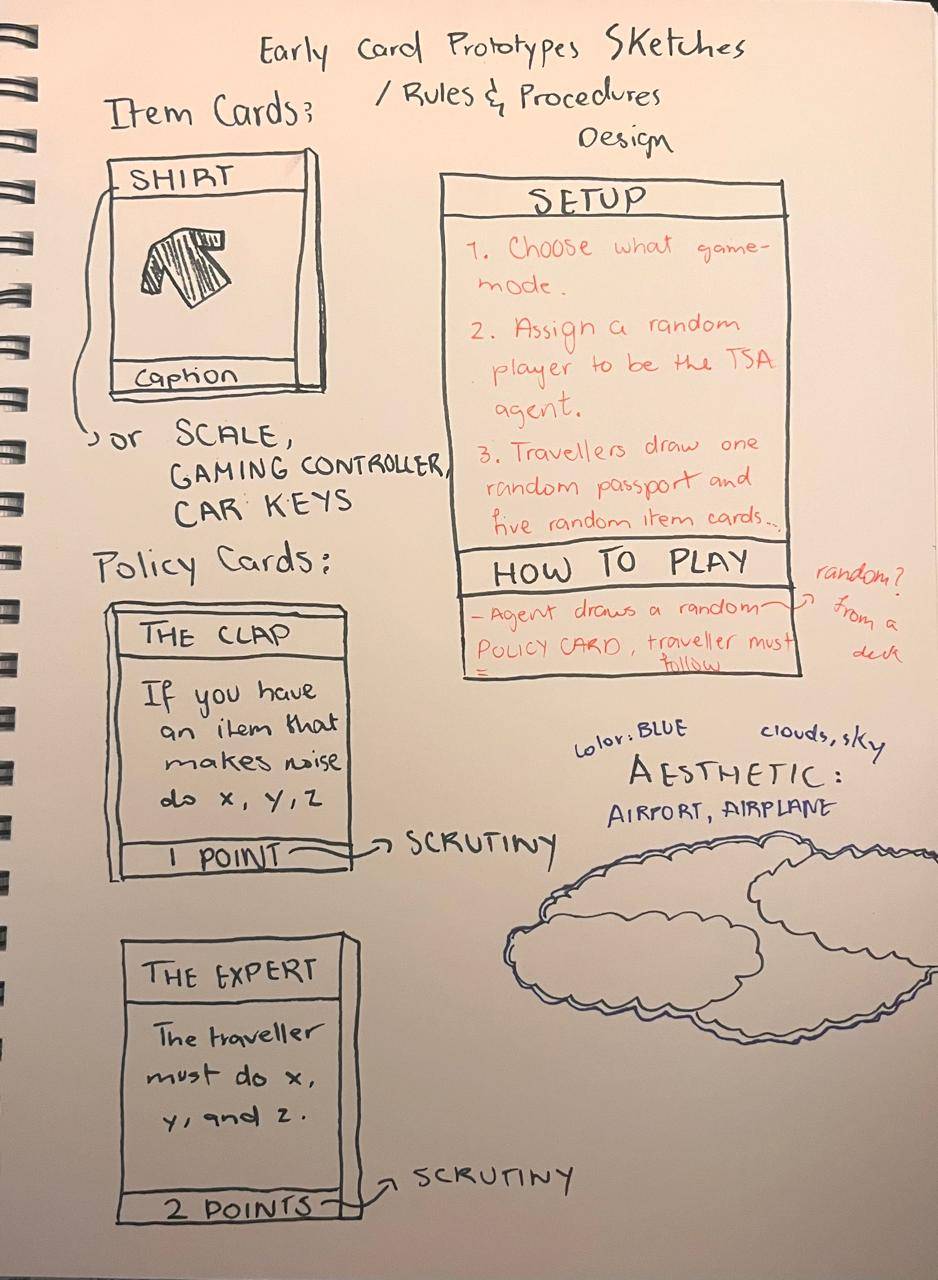 Early Card Prototypes Sketches
/ Rules & Procedures
Design
Item Cards:
SHIRT
Caption
or SCALE,
GAMING CONTROLLER,
CAR KEYS
Policy Cards:
THE CLAP
If you have
an item that
makes noise
do x, y, z
1 POINT
SCRUTINY
THE EXPERT
The traveller
must do x,
y, and z.
2 POINTS
SCRUTINY
SETUP
1. Choose what game-
mode.
2. Assign a random
player to be the TSA
agent.
3. Travellers draw one
random passport and
five random item cards...
HOW TO PLAY
- Agent draws a random
POLICY CARD, traveller must
follow
random?
from a
deck
color: BLUE
clouds, sky
AESTHETIC:
AIRPORT, AIRPLANE